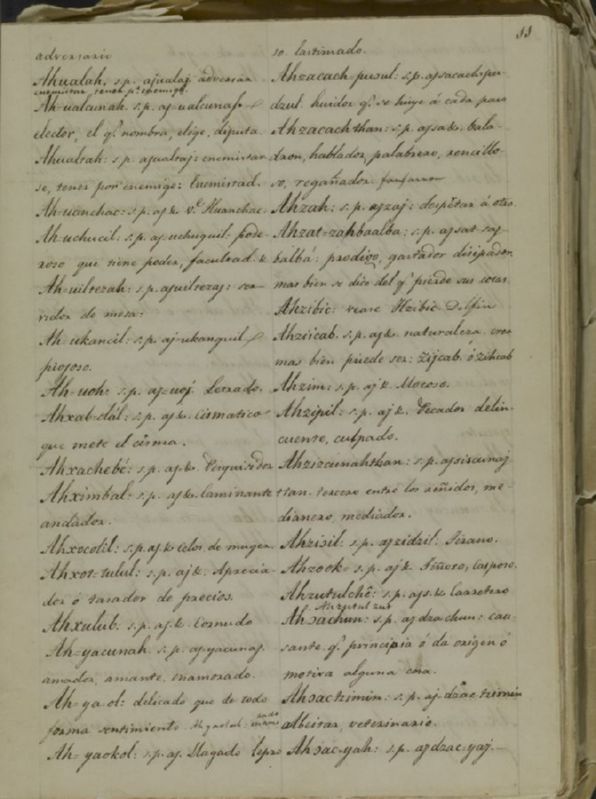 11
adversario
Ahualah. s.p. ajualaj adversar
enemistar, tener pr. enemigo.
Ah-ualcunah. s.p. aj-ualcunaj
elector, el q. nombra, elige, diputa.
Ahualtah: s.p. ajualtaj: enemistar
se, tener por enemigo: Enemistad.
Ah-uanchac: s.p. aj& v. Huanchac.
Ah-uchucil: s.p. aj-uchuquil. pode-
roso que tiene poder, facultad &
Ah-uiltezah: s.p. ajuiltezaj: ser-
vidor de mesa:
Ah-ukancil: s.p. aj-ukanquil
piojoso.
Ah-uoh: s.p. aj-uoj. Letrado.
Ahxab-clál: s.p. aj&. Cismatico
que mete el cisma.
Ahxachebé: s.p. aj&. Perquisidor
Ahximbal: s.p. aj&. Caminante
andador.
Ahxocotil: s.p. aj& celos de muger.
Ahxot-tulul: s.p. aj&. Aprecia-
dor ó tasador de precios.
Ahxulub. s.p. aj.& Cornudo
Ah-yacunah. s.p. aj-yacunaj.
amador, amante, enamorado.
Ah-ya-ol: delicado que de todo
forma sentimiento.
Ah-yaokol: s.p. aj. Llagado lepro
so. lastimado.
Ahzacach-puzul: s.p. ajsacach-pu-
dzul. huidor q. se huye á cada paso
Ahzacach-than: s.p. ajsa&. bala-
dron, hablador, palabrero, rencillo-
so, regañador. fanfarron
Ahzah: s.p. ajzaj: despertar á otro.
Ahzat-zahbaalba: s.p. ajsat-saj-
balbá: prodigo, gastador disipador
mas bien se dice del q. pierde sus cosas
Ahzibic: vease Hzibic Delfin
Ahzicab. s.p. aj& naturaleza. oro
mas bien puede ser: zijcab. ó zihcab
Ahzim: s.p. aj&. Mocoso.
Ahzipil: s.p. aj&. Pecador delin-
cuente, culpado.
Ahzizcunahthan: s.p. ajsiscunaj
ttan. tercero entre los reñidos, me-
dianero, mediador.
Ahzizil: s.p. ajzidzil. Tirano.
Ahzook: s.p. aj&. Tiñoso, casposo.
Ahzutulché: s.p. ajs.&. Carretero
Ahɔachun: s.p. aj dzachun: cau-
sante q. principia ó da origen ó
motiva alguna cosa.
Ahɔactzimin: s.p. aj-dzac-tzimin
albeitar, veterinario.
Ahɔac-yah: s.p. ajdzac-yaj.